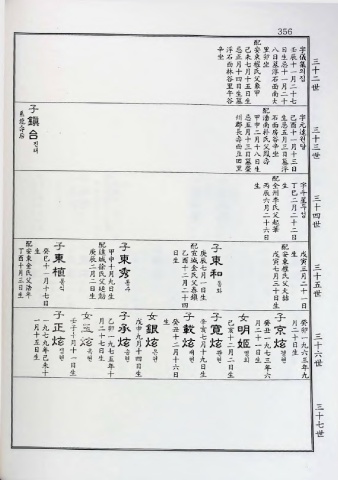 356
三十二世
字儀集의집
壬辰十一月二十七
日生忌十一月二十
八日墓浮石面南大
里卯坐
配安東權氏父象甲
己未七月十五日生
忌正月十四日墓
浮石面林谷里午谷
辛坐
三十三世
字元達원달
己酉十一月十三日
生忌五月三日墓浮
石面房谷辛坐
配潘南朴氏父鳳
甲申二月十八日生
忌五月十三日墓榮
州郡長壽面豆田里
子鎭台진태
系從
三十四世
丁巳二月二十二日
生
配全州李氏父起華
丙辰六月二十六日
生
三十五世
戊寅三月二十一日
生
配安東權氏父大
戊寅七月三十日生
子東和동화
庚辰七月一日生
配宣城金氏父
乙酉十二月二十四
日生
子東秀동수
甲申十月九日生
配達城徐氏父延
庚辰二月二日生
子東植동식
癸巳十一月十七日
生
配安東金氏父浩年
丁酉十月三日生
三十六世
癸卯一九六三年九
月二十日生
子京炫경현
癸丑一九七三年六
月二十一日生
女明姬명희
己亥十二月二日生
子寬炫관현
辛亥七月十九日生
子載炫재현
癸丑十二月十六日
生
女銀炫은현
戊申九月十四日生
子承炫승현
乙卯一九七五年十
月二十七日生
壬子十月十一日生
子正炫정현
一九七九年己未十
一月十五日生
三十七世